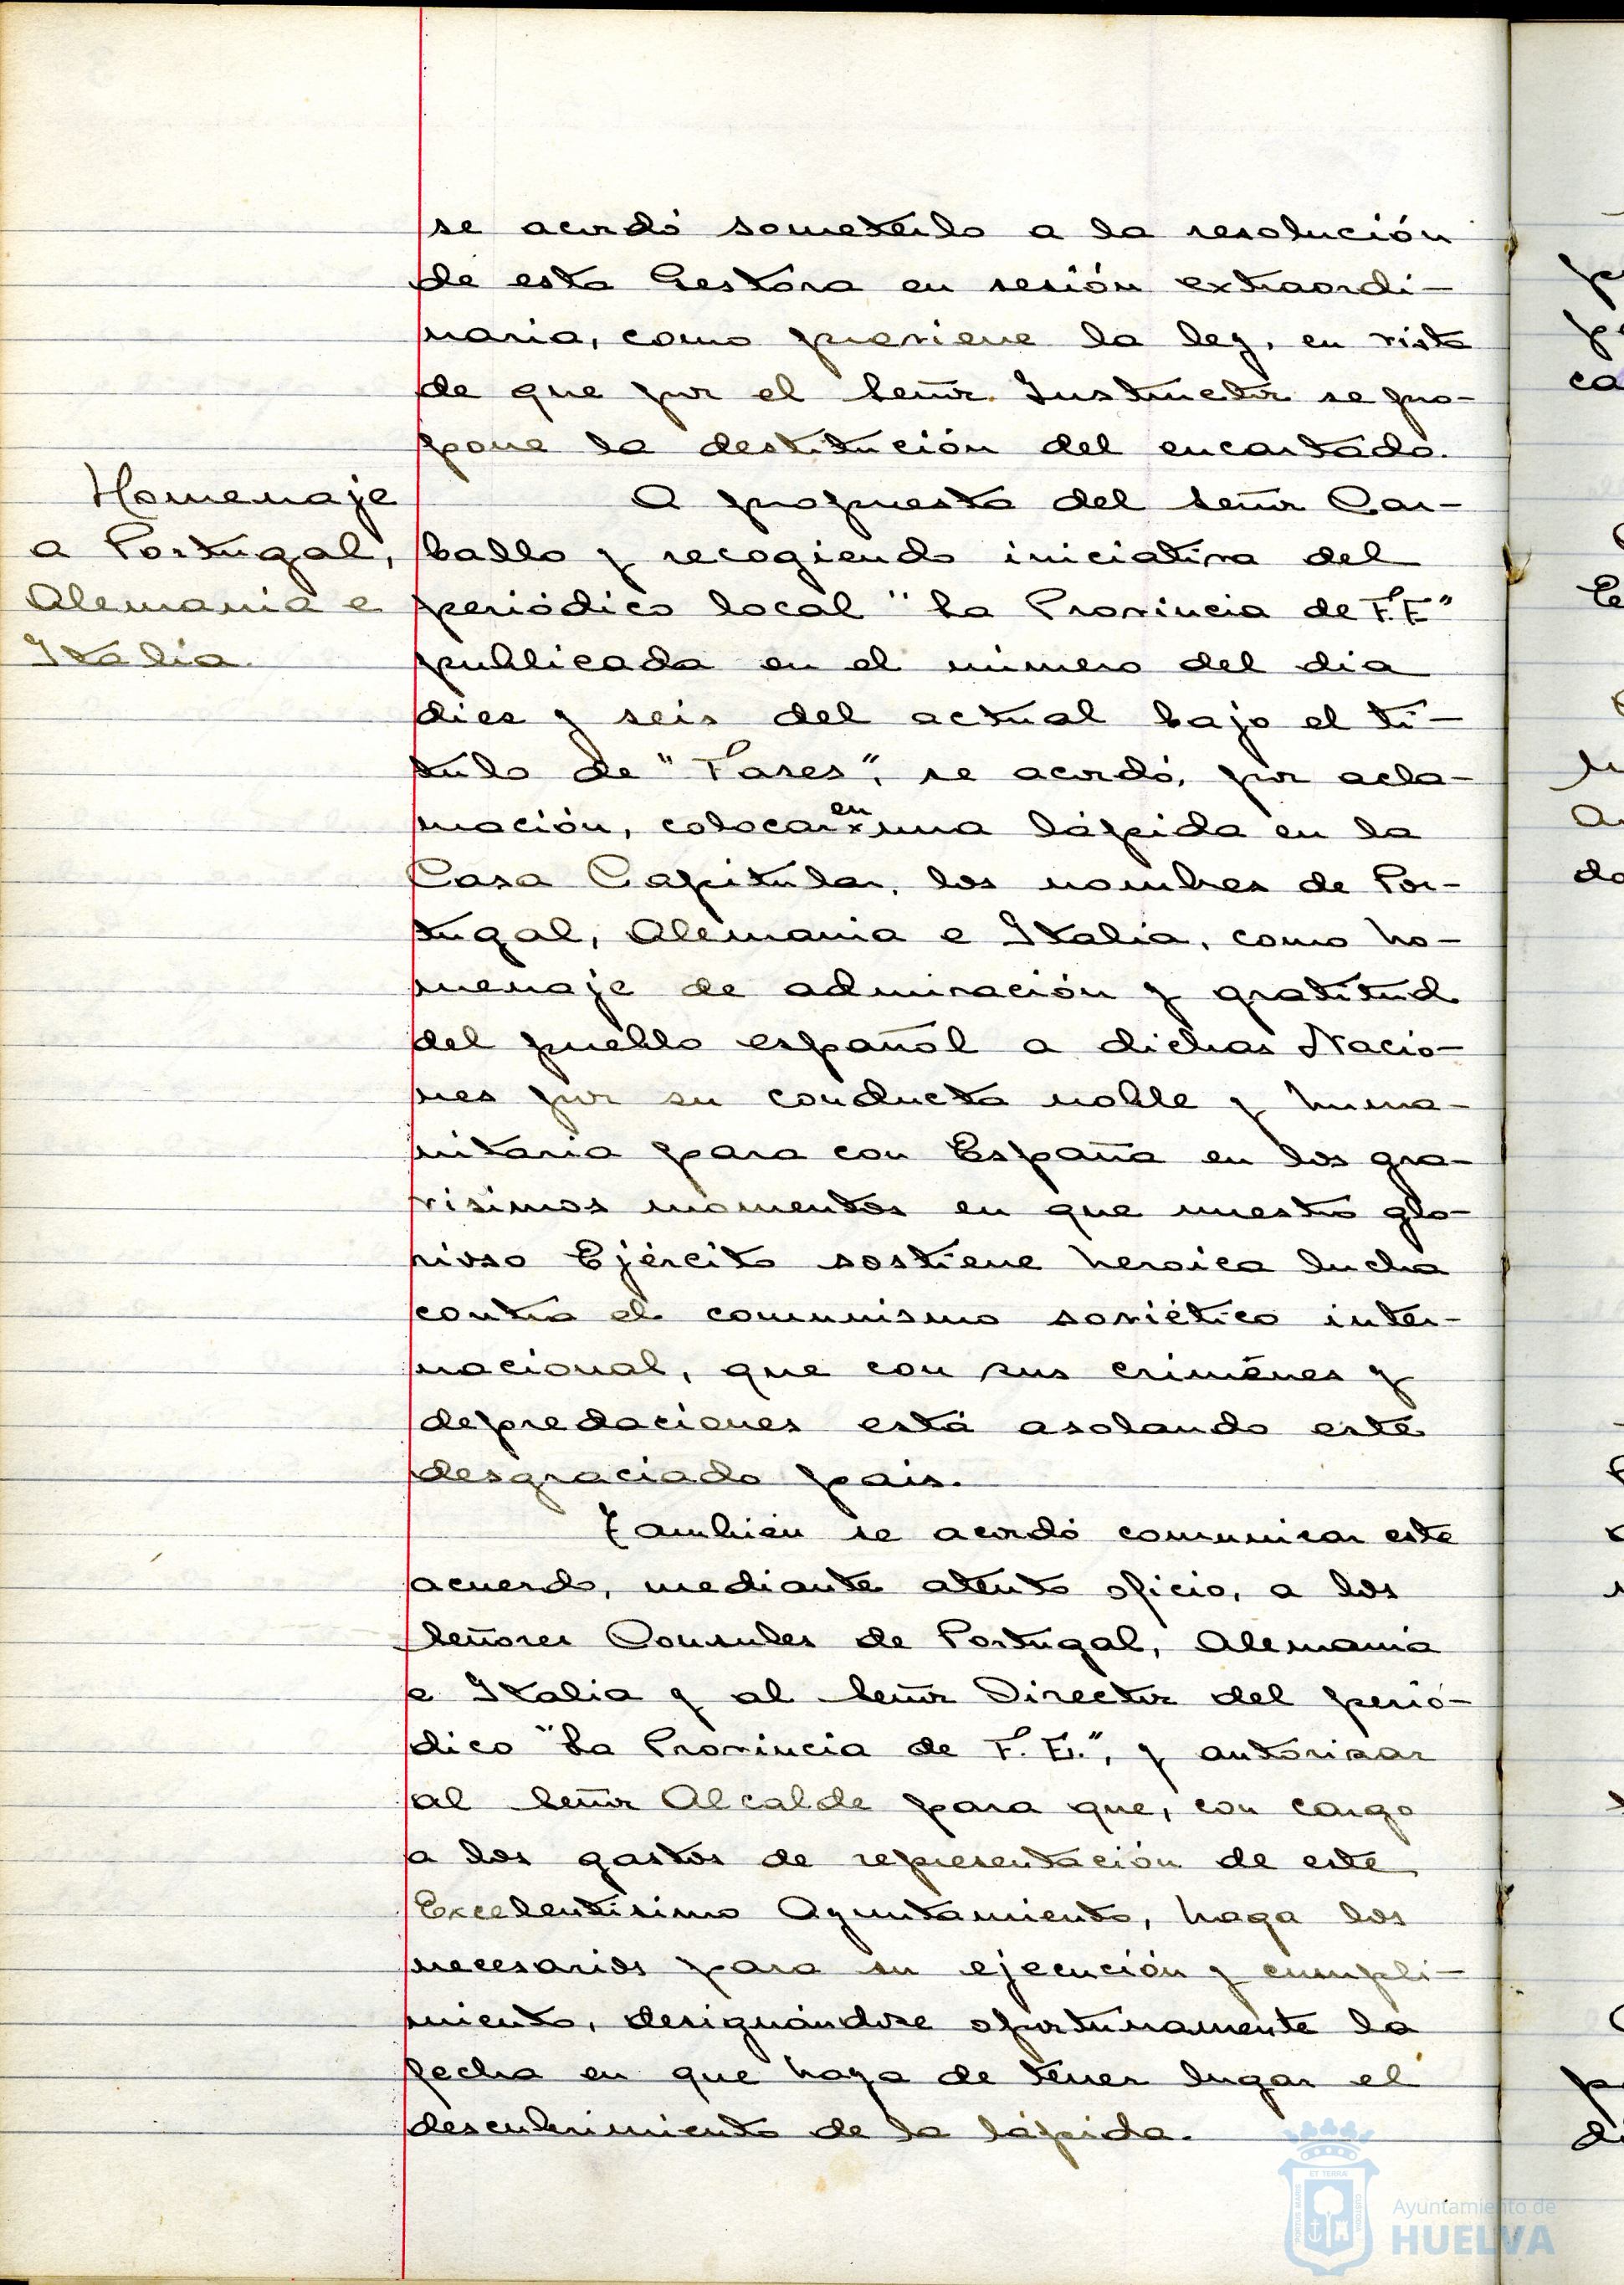 se acordó someterlo a la resolución
de esta Gestora en sesión extraordi-
naria, como previene la ley, en vista
de que por el Señor Instructor se pro-
pone la destitución del encartado.
Homenaje
a Portugal,
Alemania e
Italia.
A propuesta del Señor Car-
ballo y recogiendo iniciativa del
periódico local "La Provincia de F.E"
publicada en el número del dia
diez y seis del actual bajo el ti-
tulo de "Fases", se acordó, por acla-
mación, colocar en una lápida en la
Casa Capitular, los nombres de Por-
tugal, Alemania e Italia, como ho-
menaje de admiración y gratitud
del pueblo español a dichas Nacio-
nes por su conducta noble y huma-
nitaria para con España en los gra-
visimos momentos en que nuestro glo-
rioso Ejército sostiene heroica lucha
contra el comunismo soviético inter-
nacional, que con sus crimenes y
depredaciones está asolando este
desgraciado pais.
También se acordó comunicar este
acuerdo, mediante atento oficio, a los
Señores Consules de Portugal, Alemania
e Italia y al Señor Director del perió-
dico "La Provincia de F. E.", y autorizar
al Señor Alcalde para que, con cargo
a los gastos de representación de este
Excelentisimo Ayuntamiento, haga los
necesarios para su ejecución y cumpli-
miento, designándose oportunamente la
fecha en que haya de tener lugar el
descubrimiento de la lápida.
Ayuntamiento de
HUELVA